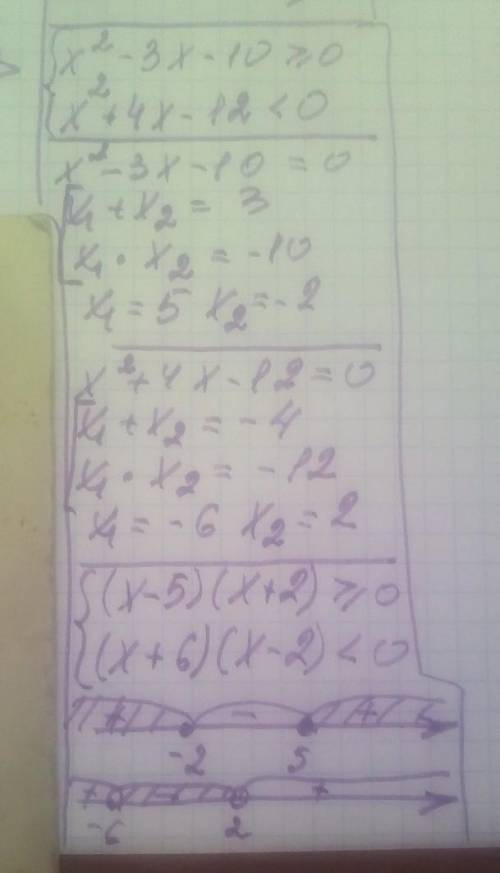 x² - 3x - 10 ≥ 0
x² + 4x - 12 < 0
x² - 3x - 10 = 0
x₁ + x₂ = 3
x₁ · x₂ = -10
x₁ = 5 x₂ = -2
x² + 4x - 12 = 0
x₁ + x₂ = -4
x₁ · x₂ = -12
x₁ = -6 x₂ = 2
(x-5)(x+2) ≥ 0
(x+6)(x-2) < 0
+ - +
-2 5
+ - +
-6 2